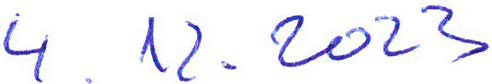 4. 12. 2023